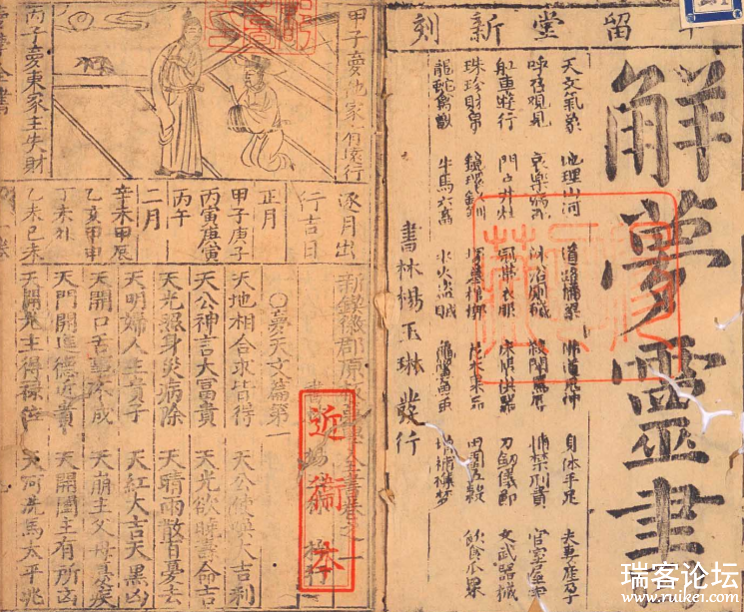 留堂新刻
解夢靈書
天文氣象 地理山河 道路橋梁 佛道鬼神 身体手足 夫妻產孕
呼召覌見 哀樂病死 沐浴厠穢 樓閣 捕禁刑責 官室屋宇
舡車遊行 門户井灶 冠帶衣服 床帳 刀劔儀節 文武器械
珠珍財帛 鏡環釵釧 墳墓棺槨 田園五穀 飲食瓜果
龍蛇禽獸 牛馬六畜 水火盗賊
書林楊玉琳發行
甲子夢他家有遠行
丙子夢東家主失財
逐月出行吉日
正月
甲子庚子
丙寅庚寅
丙午
二月
辛未甲辰
乙亥甲申
丁未外
乙未己未
新鍥徽郡原板
卷之一
○夢天文篇第一
天地相合求皆得
天公使喚大吉利
天公神言大富貴
天光欲曉壽命吉
天光照身災病除
天晴雨散百憂去
天明婦人生貴子
天紅大吉天黑凶
天開口舌事不成
天崩主父母憂疾
天門開進德近貴
天開圖主有所凶
天開光主得祿位
天河洗馬太平兆
近衛本
瑞客论坛
www.ruikei.com